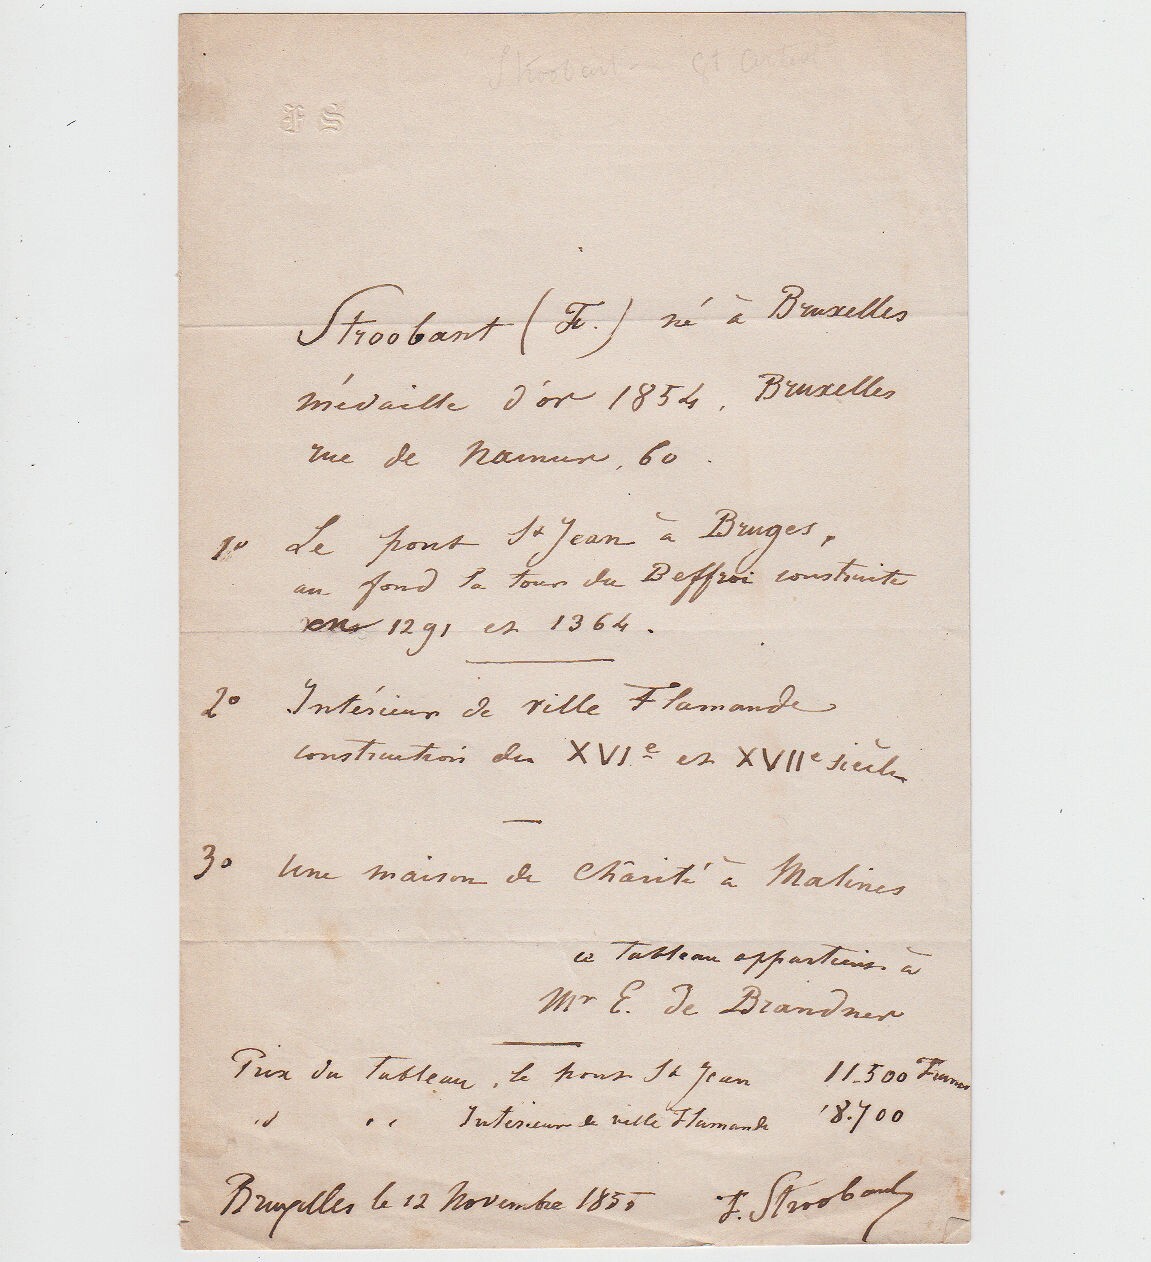 Stroobant
F S
Stroobant (F.) né à Bruxelles
médaille d'or 1854, Bruxelles
rue de Namur, 60.
1º Le pont St Jean à Bruges,
au fond la tour du Beffroi construite
en 1291 et 1364.
2º Intérieur de ville Flamande
construction du XVIe et XVIIe siècle
3º Une maison de Charité à Malines
ce tableau appartient à
Mr E. de Brandner
Prix du tableau, le pont St Jean 11.500 Francs
" " Intérieur de ville Flamande
Bruxelles le 12 Novembre 1855 F. Stroobant